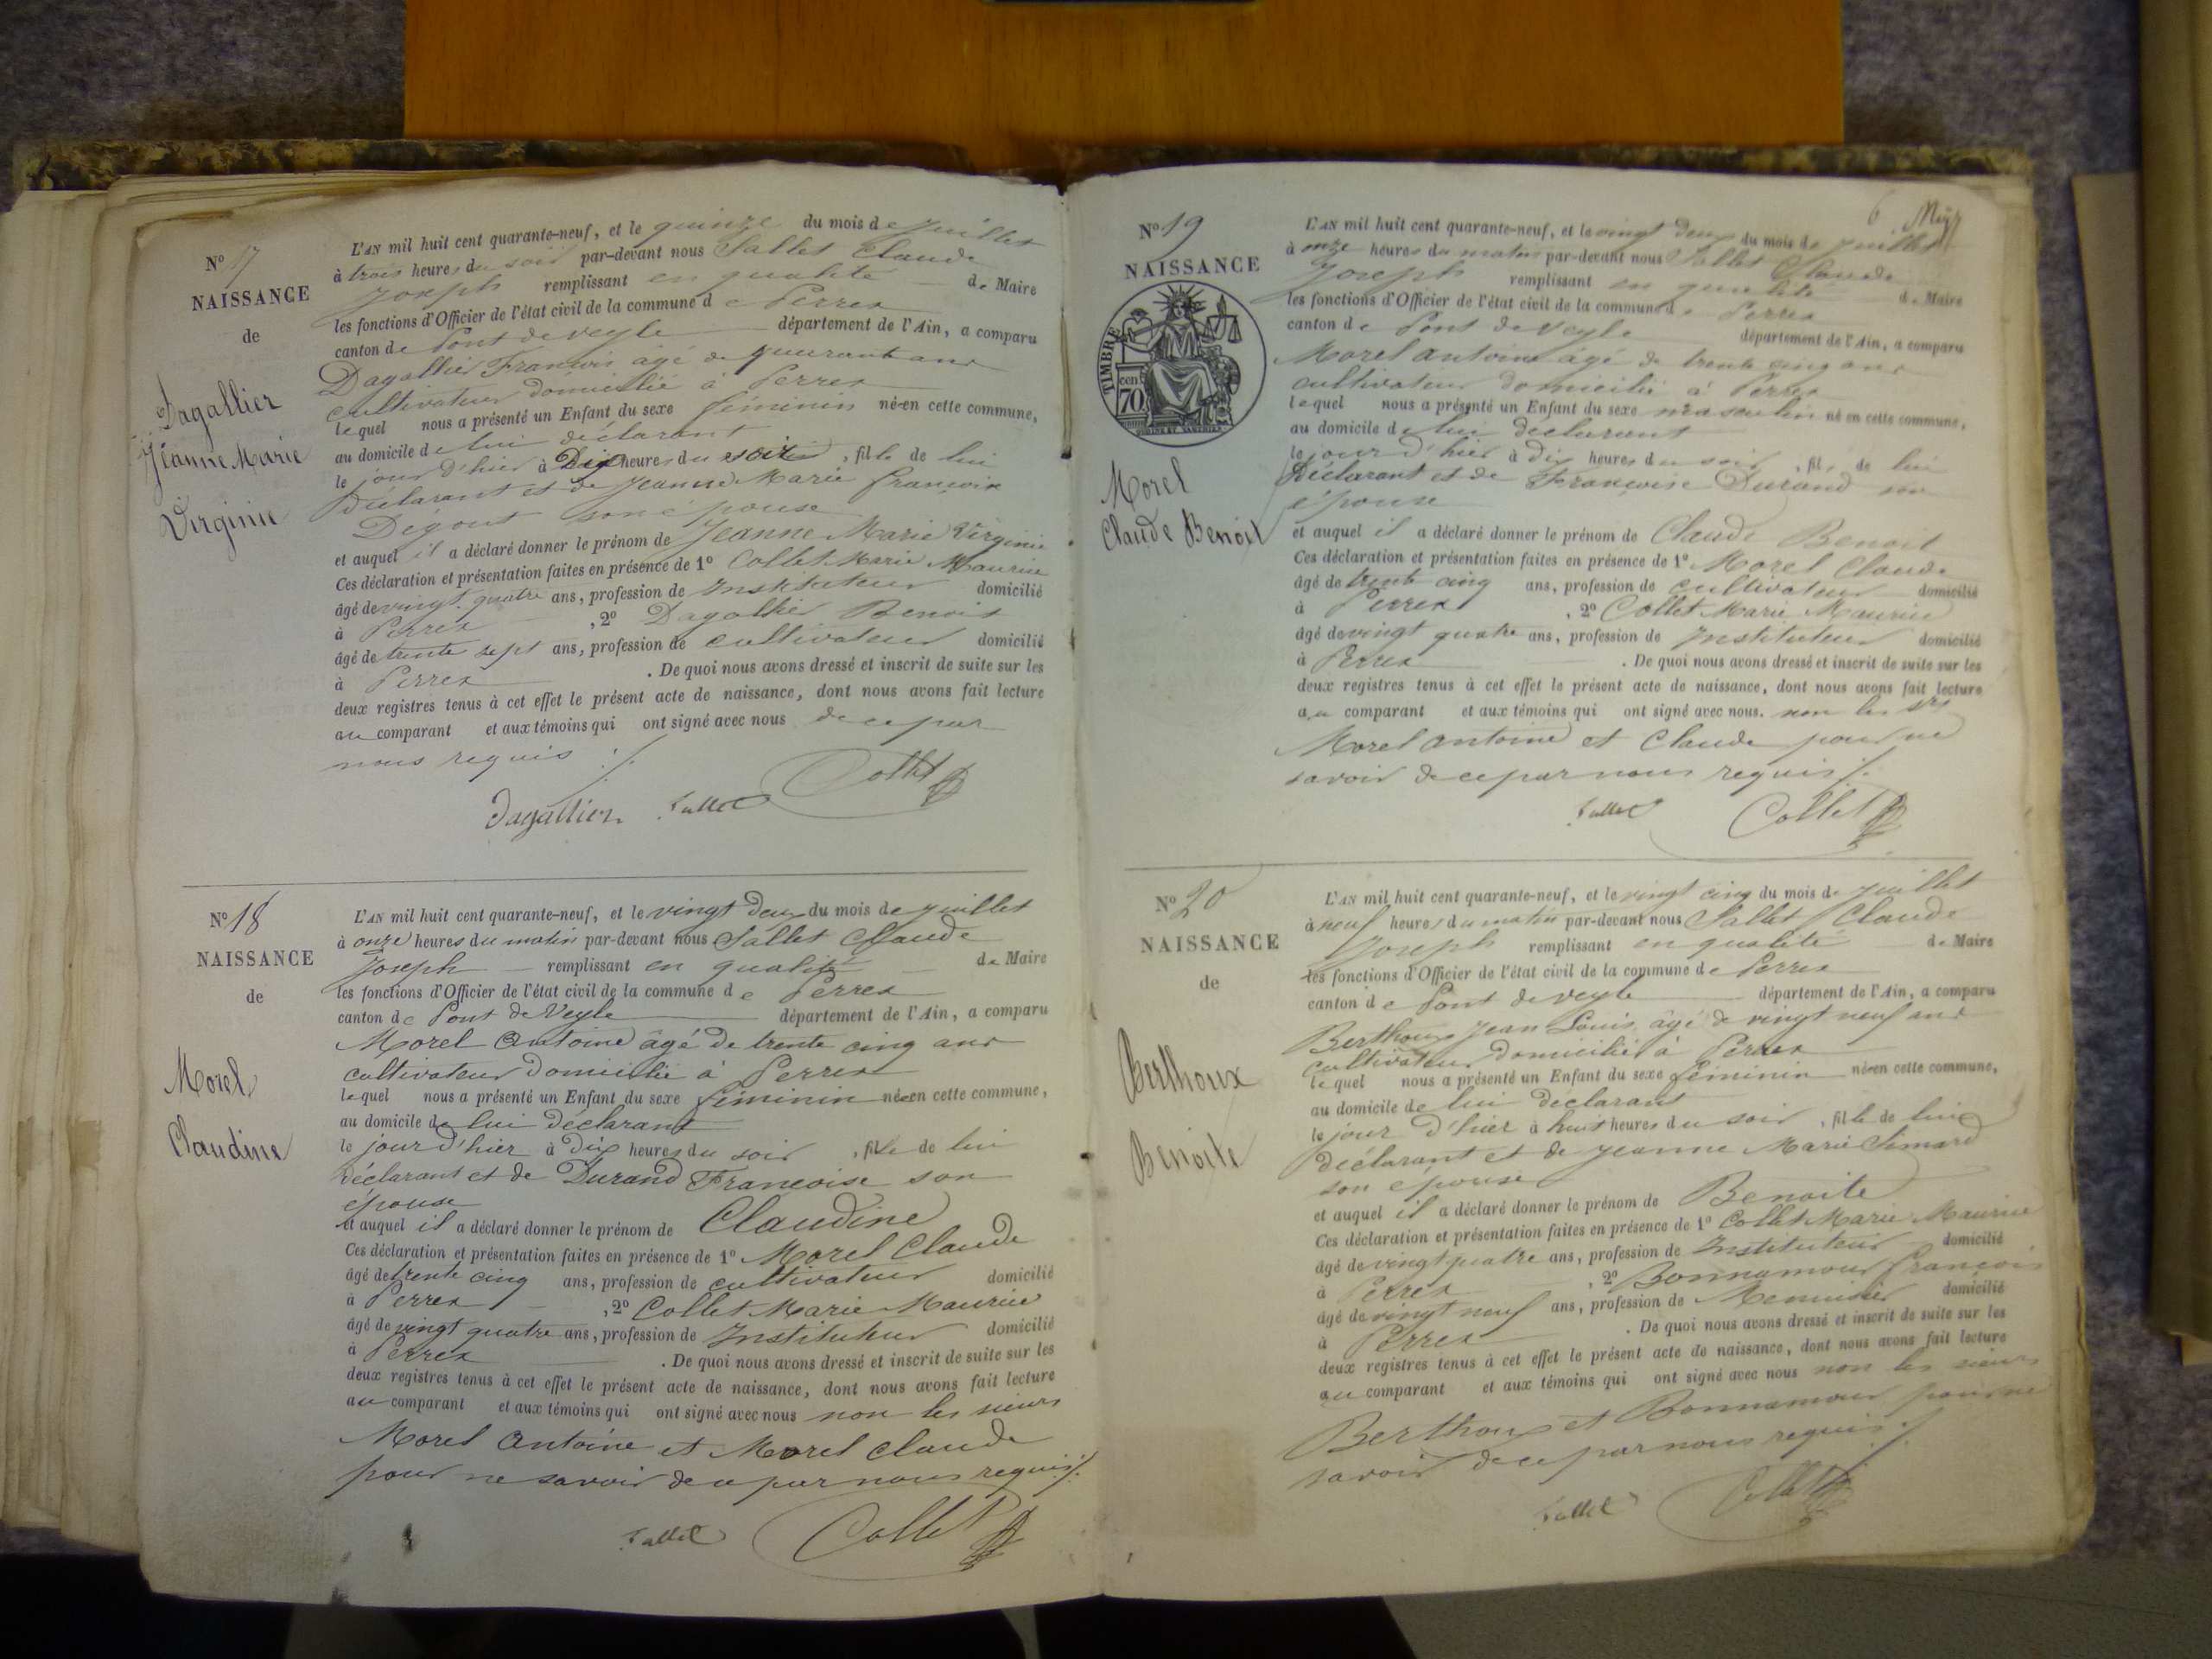 N° 17
NAISSANCE
de
Dagallier
Jeanne Marie
Virginie
L'AN mil huit cent quarante-neuf, et le quinze du mois de juillet
à trois heures du soir par-devant nous Sallet Claude
Joseph remplissant en qualité de Maire
les fonctions d'Officier de l'état civil de la commune de Perrex
canton de Pont de veyle département de l'Ain, a comparu
Dagallier François âgé de quarante ans
cultivateur domicilié à Perrex
lequel nous a présenté un Enfant du sexe féminin née en cette commune,
au domicile de lui déclarant
le jour d'hier à Dix heures du soir, fille de lui
déclarant et de Jeanne Marie françoise
Dégout son épouse
et auquel il a déclaré donner le prénom de Jeanne Marie Virginie
Ces déclaration et présentation faites en présence de 1° Collet Marie Maurice
âgé de vingt quatre ans, profession de Instituteur domicilié
à Perrex, 2° Dagallier Benoit
âgé de trente sept ans, profession de cultivateur domicilié
à Perrex. De quoi nous avons dressé et inscrit de suite sur les
deux registres tenus à cet effet le présent acte de naissance, dont nous avons fait lecture
au comparant et aux témoins qui ont signé avec nous de ce par
nous requis ./.
Dagallier Sallet Collet
N° 18
NAISSANCE
de
Morel
Claudine
L'AN mil huit cent quarante-neuf, et le vingt deux du mois de juillet
à onze heures du matin par-devant nous Sallet Claude
Joseph remplissant en qualité de Maire
les fonctions d'Officier de l'état civil de la commune de Perrex
canton de Pont de Veyle département de l'Ain, a comparu
Morel Antoine âgé de trente cinq ans
cultivateur domicilié à Perrex
lequel nous a présenté un Enfant du sexe féminin née en cette commune,
au domicile de lui déclarant
le jour d'hier à dix heures du soir, fille de lui
déclarant et de Durand Francoise son
épouse
et auquel il a déclaré donner le prénom de Claudine
Ces déclaration et présentation faites en présence de 1° Morel Claude
âgé de trente cinq ans, profession de cultivateur domicilié
à Perrex, 2° Collet Marie Maurice
âgé de vingt quatre ans, profession de Instituteur domicilié
à Perrex. De quoi nous avons dressé et inscrit de suite sur les
deux registres tenus à cet effet le présent acte de naissance, dont nous avons fait lecture
au comparant et aux témoins qui ont signé avec nous non les sieurs
Morel Antoine et Morel Claude
pour ne savoir de ce par nous requis ./.
Sallet Collet
6
N° 19
NAISSANCE
TIMBRE
cen.
70
Morel
Claude Benoit
L'AN mil huit cent quarante-neuf, et le vingt deux du mois de juillet
à onze heures du matin par-devant nous Sallet Claude
Joseph remplissant en qualité de Maire
les fonctions d'Officier de l'état civil de la commune de Perrex
canton de Pont de Veyle département de l'Ain, a comparu
Morel Antoine âgé de trente cinq ans
cultivateur domicilié à Perrex
lequel nous a présenté un Enfant du sexe masculin né en cette commune,
au domicile de lui déclarant
le jour d'hier à dix heures du soir, fils de lui
Déclarant et de Françoise Durand son
épouse
et auquel il a déclaré donner le prénom de Claude Benoit
Ces déclaration et présentation faites en présence de 1° Morel Claude
âgé de trente cinq ans, profession de cultivateur domicilié
à Perrex, 2° Collet Marie Maurice
âgé de vingt quatre ans, profession de Instituteur domicilié
à Perrex. De quoi nous avons dressé et inscrit de suite sur les
deux registres tenus à cet effet le présent acte de naissance, dont nous avons fait lecture
au comparant et aux témoins qui ont signé avec nous. non les srs
Morel Antoine et Claude pour ne
savoir de ce par nous requis ./.
Sallet Collet
N° 20
NAISSANCE
de
Berthoux
Benoite
L'AN mil huit cent quarante-neuf, et le vingt cinq du mois de juillet
à neuf heures du matin par-devant nous Sallet Claude
Joseph remplissant en qualité de Maire
les fonctions d'Officier de l'état civil de la commune de Perrex
canton de Pont de veyle département de l'Ain, a comparu
Berthoux Jean Louis âgé de vingt neuf ans
cultivateur domicilié à Perrex
lequel nous a présenté un Enfant du sexe féminin née en cette commune,
au domicile de lui déclarant
le jour d'hier à huit heures du soir, fille de lui
déclarant et de Jeanne Marie Simard
son épouse
et auquel il a déclaré donner le prénom de Benoite
Ces déclaration et présentation faites en présence de 1° Collet Marie Maurice
âgé de vingt quatre ans, profession de Instituteur domicilié
à Perrex, 2° Bonnamour François
âgé de vingt neuf ans, profession de Menuisier domicilié
à Perrex. De quoi nous avons dressé et inscrit de suite sur les
deux registres tenus à cet effet le présent acte de naissance, dont nous avons fait lecture
au comparant et aux témoins qui ont signé avec nous non les sieurs
Berthoux et Bonnamour pour ne
savoir de ce par nous requis ./.
Sallet Collet